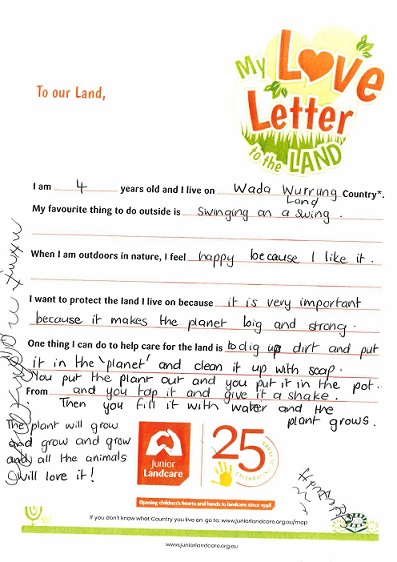 My Love
Letter
to the LAND
To our Land,
I am 4 years old and I live on Wada Wurrung Country*.
Land
My favourite thing to do outside is swinging on a swing.
When I am outdoors in nature, I feel happy because I like it.
I want to protect the land I live on because it is very important
because it makes the planet big and strong.
One thing I can do to help care for the land is to dig up dirt and put
it in the 'planet' and clean it up with soap.
You put the plant out and you put it in the pot.
From and you tap it and give it a shake.
Then you fill it with water and the
plant grows.
The plant will grow
and grow and grow
and all the animals
will love it!
Junior
Landcare
25
YEARS OF
CELEBRATING
Opening children's hearts and hands to landcare since 1998
If you don't know what Country you live on go to: www.juniorlandcare.org.au/map
www.juniorlandcare.org.au